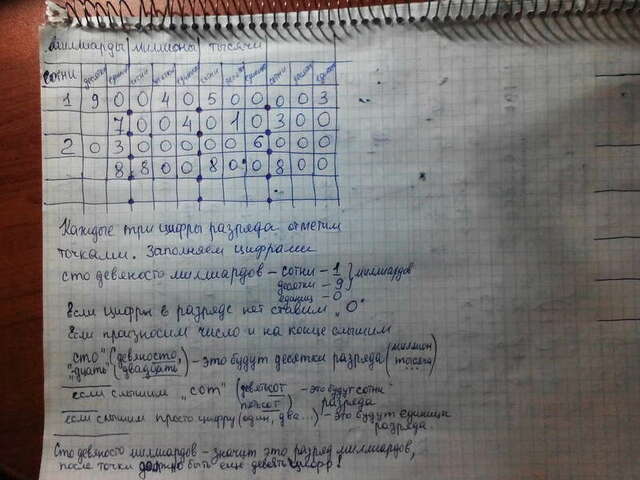 миллиарды миллионы тысячи
сотни десятки единиц сотни десятки единиц сотни десятки единиц сотни десятки единиц
1 9 0 0 4 0 5 0 0 0 0 3
7 0 0 4 0 1 0 3 0 0
2 0 3 0 0 0 0 0 6 0 0 0
8 8 0 0 8 0 0 8 0 0
Каждые три цифры разряда отметим
точками. Заполняем цифрами
сто девяносто миллиардов – сотни – 1
десятки – 9
единиц – 0
миллиардов
Если цифры в разряде нет ставим "0"
Если произносим число и на конце слышим
"сто" (девяносто,
"-дцать" (двадцать) – это будут десятки разряда (миллион
тысяча)
если слышим "сот" (девятьсот
пятьсот) – это будут сотни
разряда
если слышим просто цифру (один, два...) – это будут единицы
разряда
Сто девяносто миллиардов – значит это разряд миллиардов,
после точки должно быть еще девять цифр!